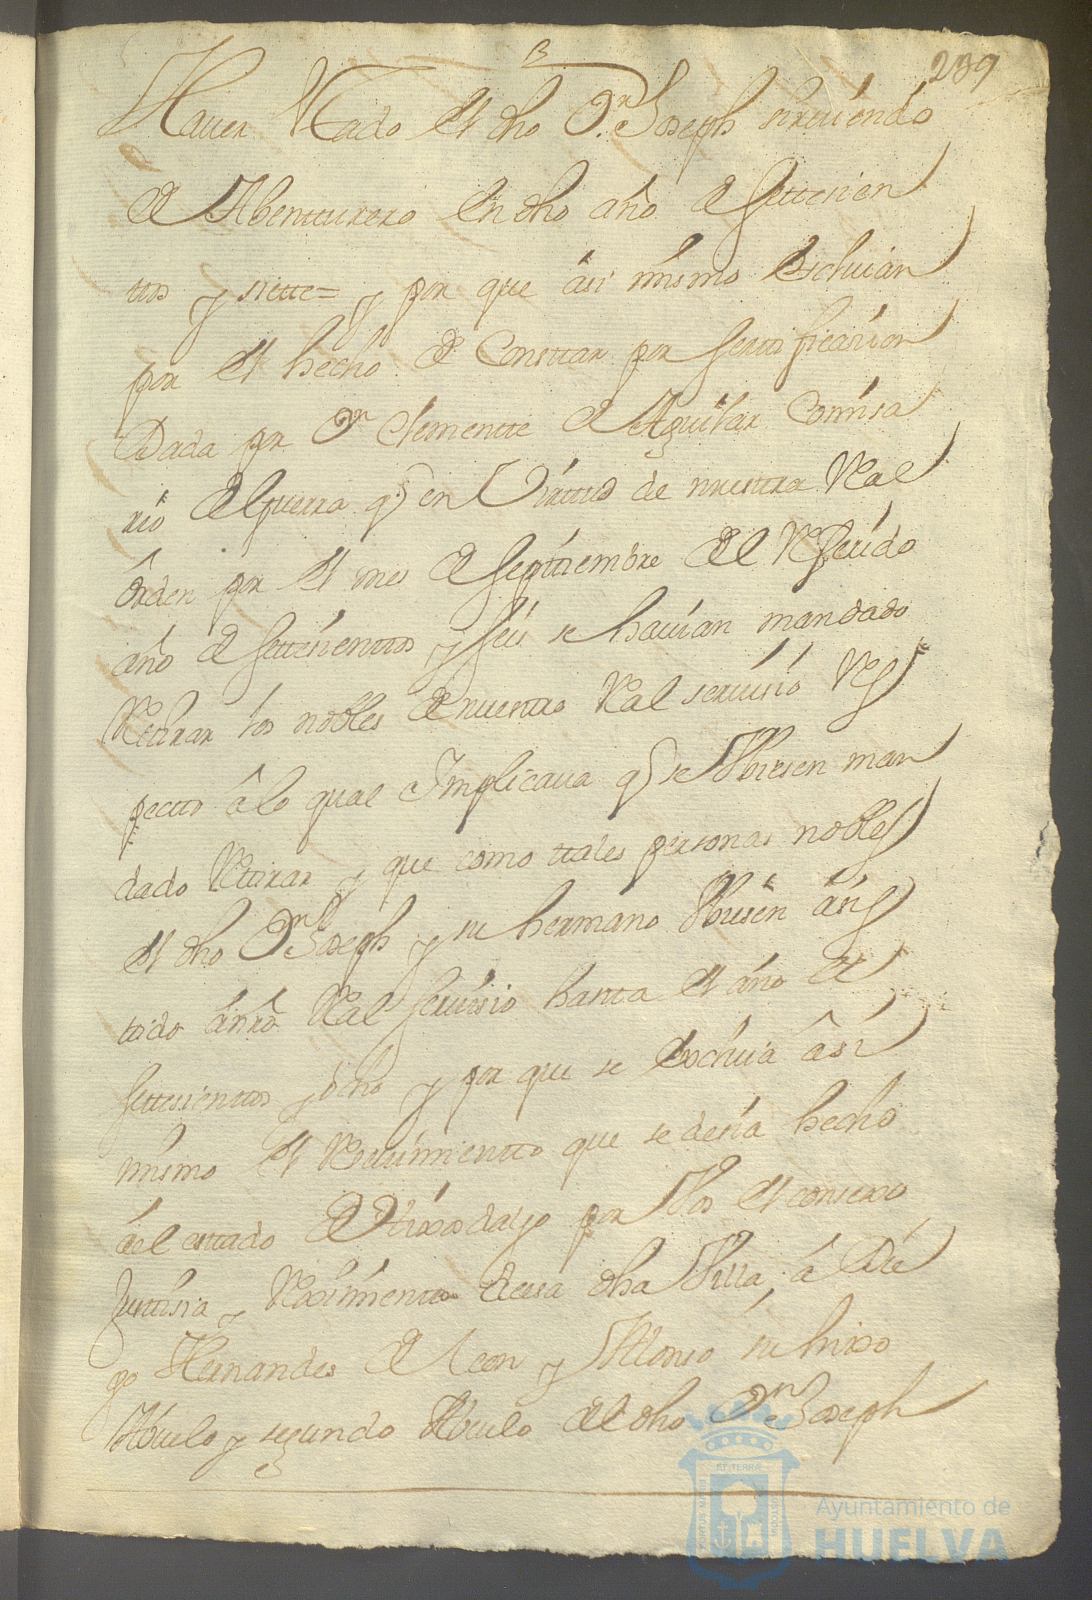 239
Hauer estado el dho Dn. Joseph sirviendo
de Abentturero en dho año de settesien
tos y siette= y por que asi mismo
por el hecho de Consttar por serttificasion
Dada por Dn Clementte de Aguilar Comisa
rio de Guerra q en Virttud de nuestra Real
orden por el mes de Septtiembre del Referido
año de settesienttos y seis se havian mandado
Retirar los nobles de nuestro Real servisio Res
pectto â lo qual Implicava q se Ubiesen man
dado Rettirar y que como ttales personas nobles
el dho Dn Joseph y su hermano Ubiesen asis
tido a nro Real servisio hasta el año de
settesienttos y ocho y por que se âsi
mismo el Resevimientto que se desia hecho
al esttado de Hixosdalgo por Vos el consexo
Justtisia y Reximientto de esa dha Villa, â Die
go Hernandes de Leon y Alonso su hixo
Abuelo y segundo Abuelo del dho Dn Joseph
PORTUS MARIS ET TERRAE CUSTODIA
Ayuntamiento de
HUELVA